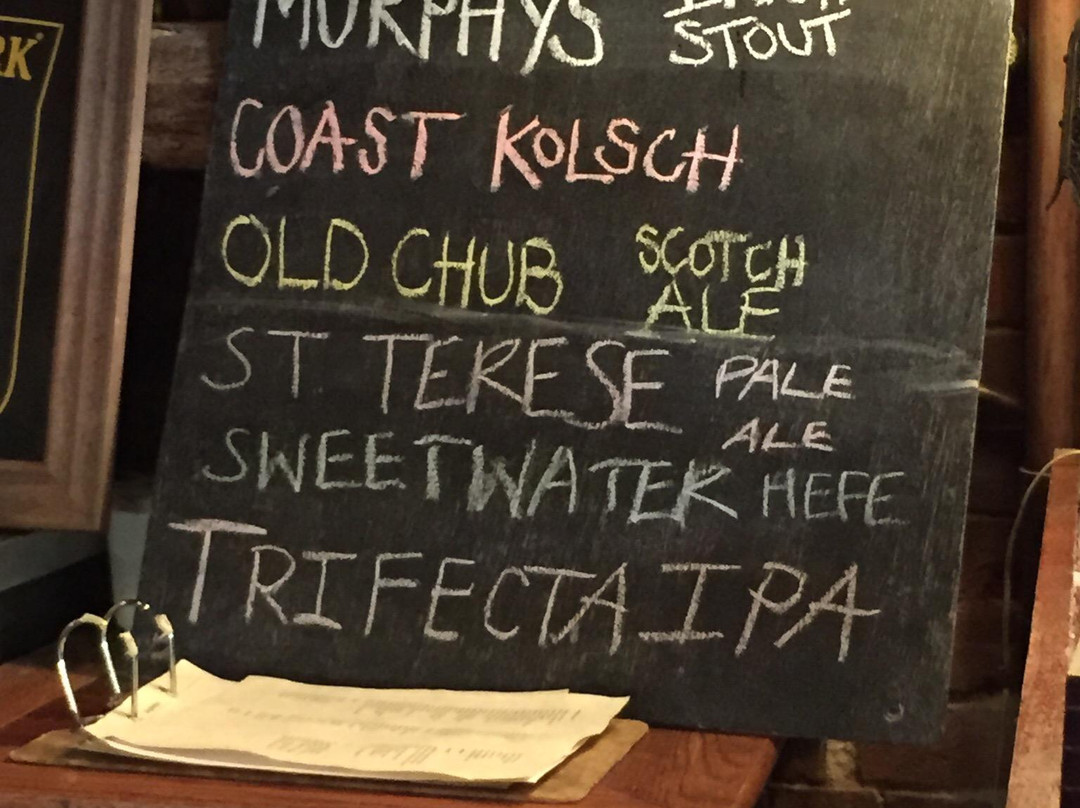 RK
MURPHYS IRISH
STOUT
COAST KOLSCH
OLD CHUB SCOTCH
ALE
ST TERESE PALE
ALE
SWEETWATER HEFE
TRIFECTA IPA